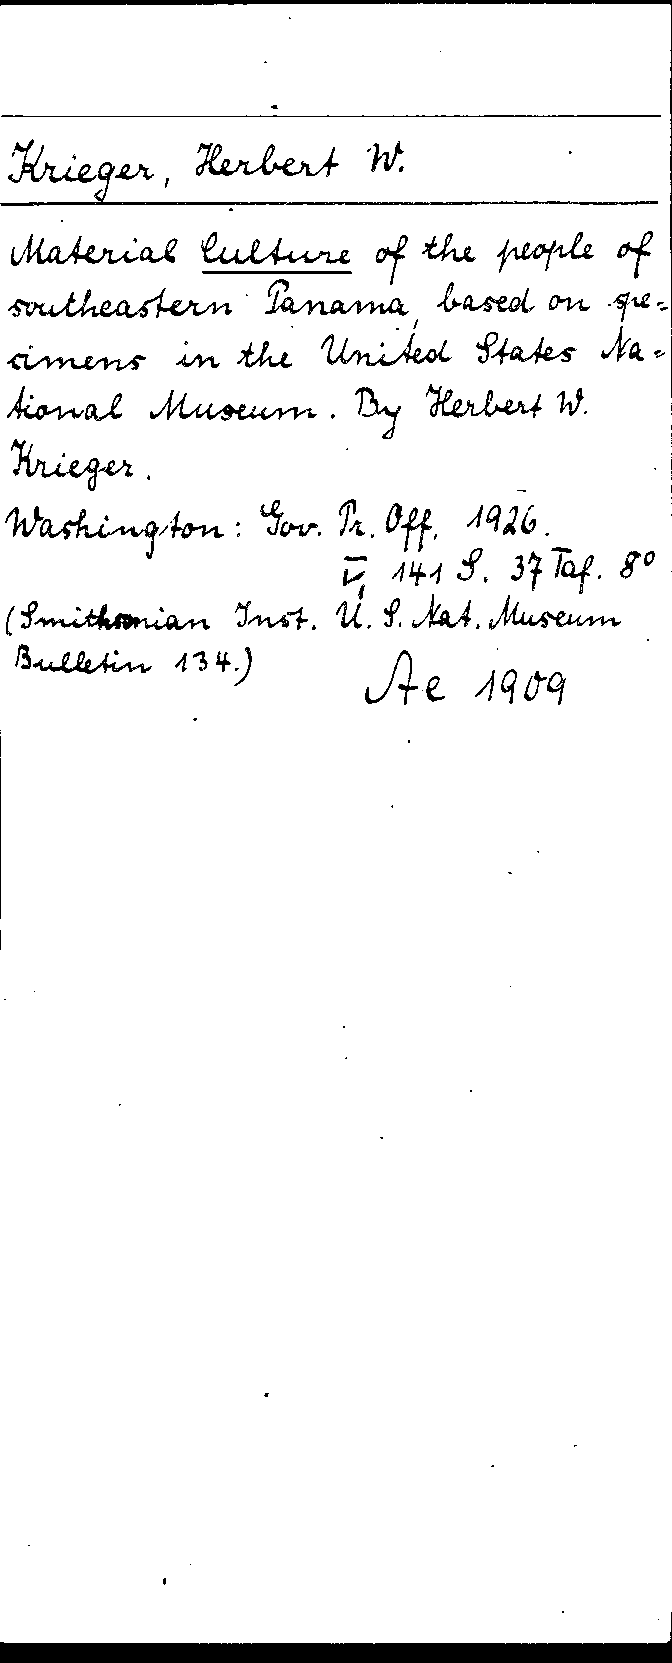 Krieger, Herbert W.
Material Culture of the people of
southeastern Panama, based on spe-
cimens in the United States Na-
tional Museum. By Herbert W.
Krieger.
Washington: Gov. Pr. Off. 1926.
V, 141 S. 37 Taf. 8°
(Smithsonian Inst. U. S. Nat. Museum
Bulletin 134.)
Ae 1909